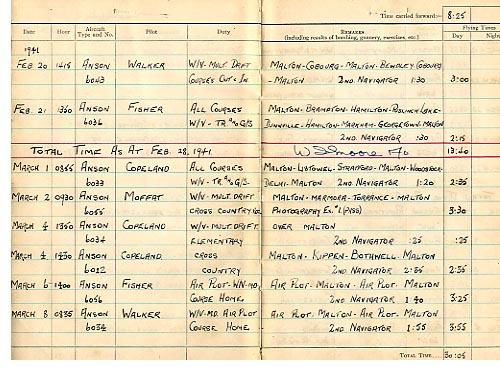 Time carried forward:— 8:25
Date Hour Aircraft Type and No. Pilot Duty REMARKS (including results of bombing, gunnery, exercises, etc.) Flying Times Day
1941
FEB. 20 1415 ANSON WALKER W/V- MULT DRIFT MALTON-COBOURG-MALTON-BENDLEY COBOURG
6043 COURSES OUT & IN -MALTON 2ND NAVIGATOR 1:30 3:00
FEB. 21 ANSON FISHER ALL COURSES MALTON-BRAMPTON-HAMILTON-
6036 W/V- DUNNVILLE-HAMILTON-MARKHAM-GEORGETOWN-MALTON
2ND NAVIGATOR :30 2:15
TOTAL TIME AS AT FEB. 28, 1941 13:40
MARCH 1 0855 ANSON COPELAND ALL COURSES MALTON-LISTOWEL-STRATFORD-MALTON-WOODSTOCK-
6033 W/V- DELHI-MALTON 2ND NAVIGATOR 1:20 2:35
MARCH 2 0930 ANSON MOFFAT W/V- MULT DRIFT MALTON-MARMORA-TORRANCE-MALTON
6055 CROSS COUNTRY PHOTOGRAPHY EX. 3:30
MARCH 4 1350 ANSON COPELAND W/V- MULT. DRIFT. OVER MALTON
6034 ELEMENTARY 2ND NAVIGATOR :25 :25
MARCH 4 1430 ANSON COPELAND CROSS MALTON-KIPPEN-BOTHWELL-MALTON
6012 COUNTRY 2ND NAVIGATOR 2:55
MARCH 6 1400 ANSON FISHER AIR PLOT- AIR PLOT-MALTON-AIR PLOT-MALTON
6056 COURSE HOME. 2ND NAVIGATOR 1:40 3:25
MARCH 8 0835 ANSON WALKER W/V-MD. AIR PLOT AIR PLOT-MALTON-AIR PLOT-MALTON
6034 COURSE HOME 2ND NAVIGATOR 1:55 3:55
TOTAL TIME.... 30:05